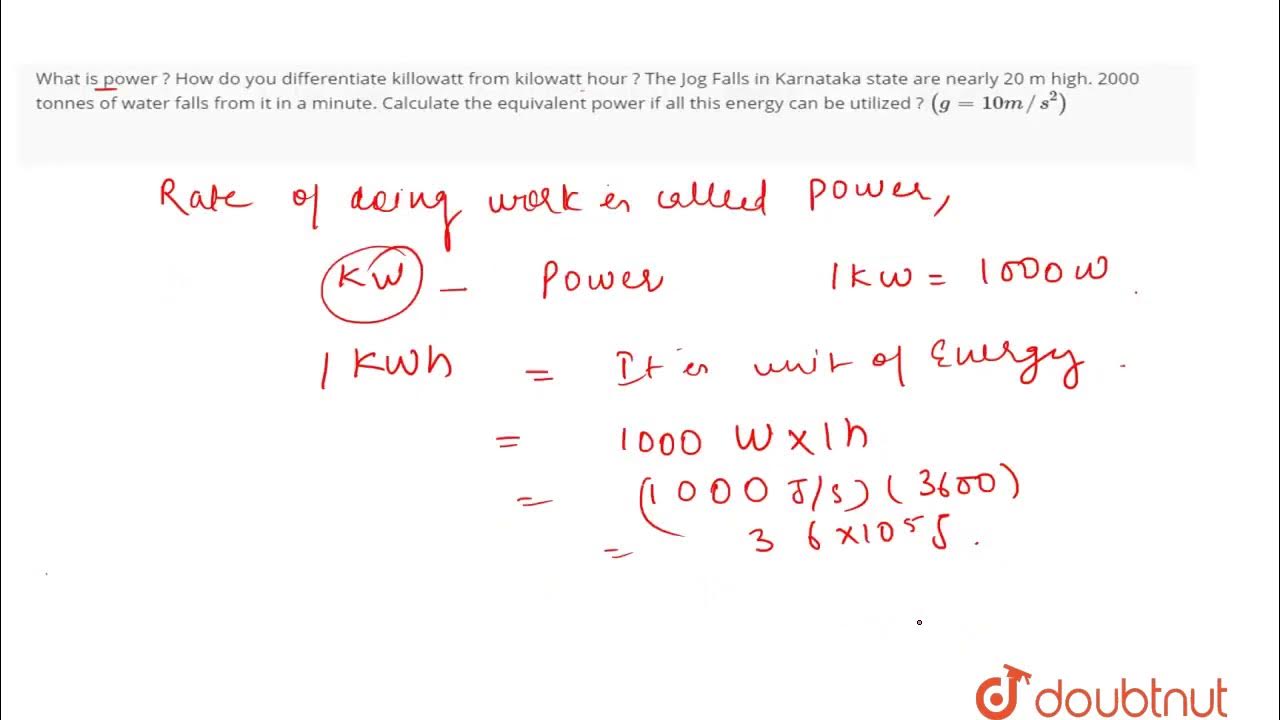 What is power ? How do you differentiate killowatt from kilowatt hour ? The Jog Falls in Karnataka state are nearly 20 m high. 2000
tonnes of water falls from it in a minute. Calculate the equivalent power if all this energy can be utilized ? (g = 10m/s²)
Rate of doing work is called power,
KW - Power 1 KW = 1000 W
1 KWh = It is unit of Energy.
= 1000 W x 1h
= (1000 J/s) (3600)
= 36 x 10⁵ J.
doubtnut